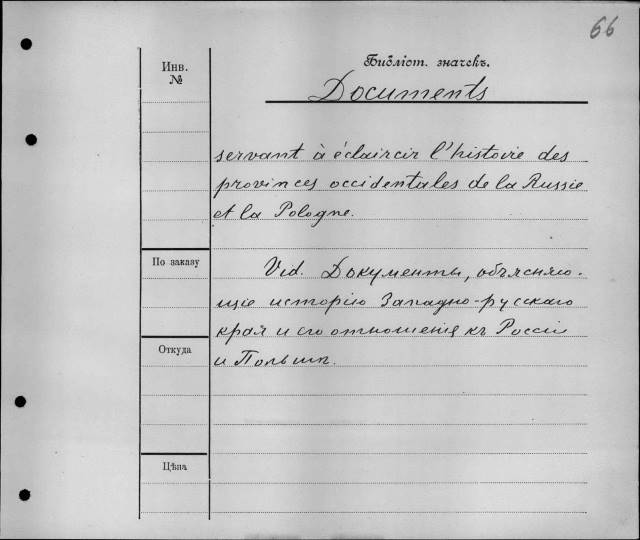 66
Инв.
№
Библіот. значекъ.
Documents
servant à éclaircir l'histoire des
provinces occidentales de la Russie
et la Pologne.
По заказу
Vid. Документы, объясняю-
щіе исторію Западно-русскаго
края и его отношенія къ Россіи
Откуда
и Польшѣ.
Цѣна